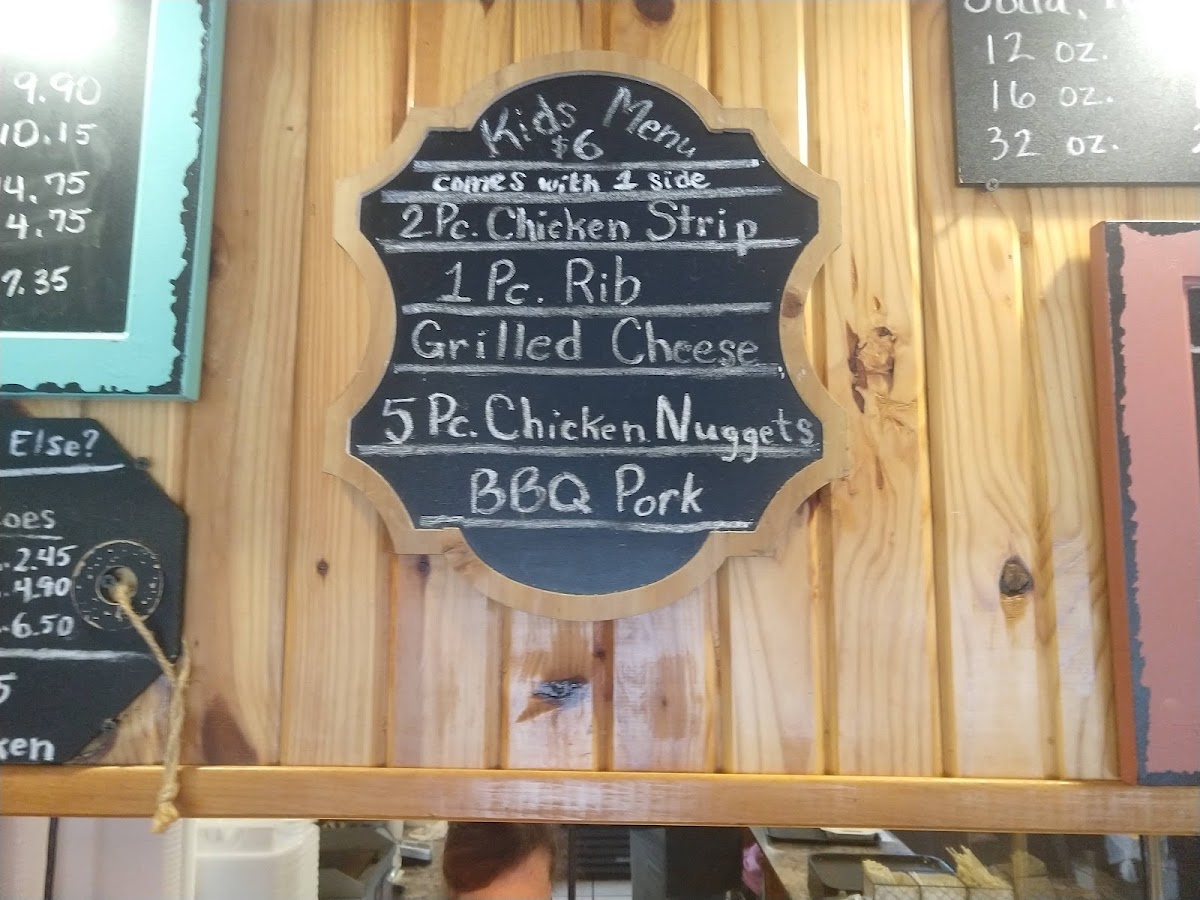 9.90
10.15
4.75
4.75
7.35
Else?
2.45
4.90
6.50
5
Kids Menu
$6
comes with 1 side
2 Pc. Chicken Strip
1 Pc. Rib
Grilled Cheese
5 Pc. Chicken Nuggets
BBQ Pork
12 oz.
16 oz.
32 oz.